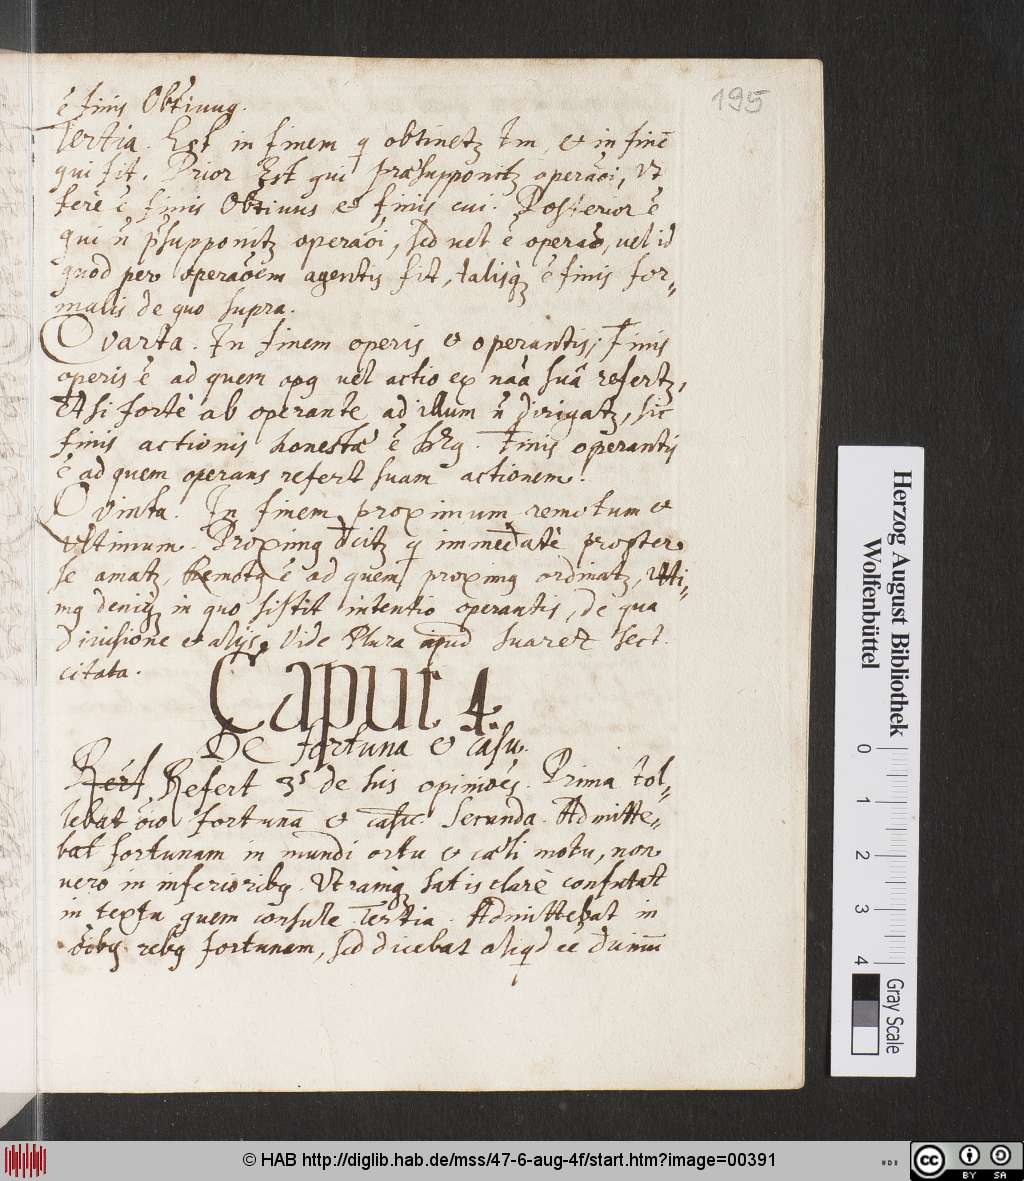 195
ē finis Obtiuug.
Tertia. Est in finem q obtinetz tm, & in finē
qui fit. Prior Est qui præsupponitz operāoi, Vt
ferè ē finis Obtiuus & finis cui. Posterior ē
qui n̄ p̄supponitz operāoi, sed uel ē operāo, uel id
quod per operāoem agentis fit, talisq; ē finis for„
malis de quo supra.
Qvarta. In finem operis & operantis; Finis
operis ē ad quem opg uel actio ex nāa suâ refertz,
Et si fortè ab operante ad illum n̄ dirigatz, sic
finis actionis honestæ ē
Finis operantis
ē ad quem operans refert suam actionem.
Qvinta. In finem proximum remotum &
Vltimum. Proximg dicitz q immediatè propter
se amatz, Remotg ē ad quem proximg ordinatz, Vlti„
mg deniq; in quo sistit intentio operantis, de qua
diuisione & alijs Vide Plura apud Suarez sect.
citata.
Caput 4.
De fortuna & casu.
Refert 3s de his opinioēs. Prima tol„
lebat oīo fortunā & casū. Secunda. Admitte„
bat fortunam in mundi ortu & cæli motu, non
uero in inferioribg. Vtramq; satis clarè confutat
in textu quem consule. Tertia. Admittebat in
oībg rebg fortunam, sed dicebat aliqd eē diuinū
Herzog August Bibliothek
Wolfenbüttel
0 1 2 3 4
Gray Scale
© HAB http://diglib.hab.de/mss/47-6-aug-4f/start.htm?image=00391
cc BY SA